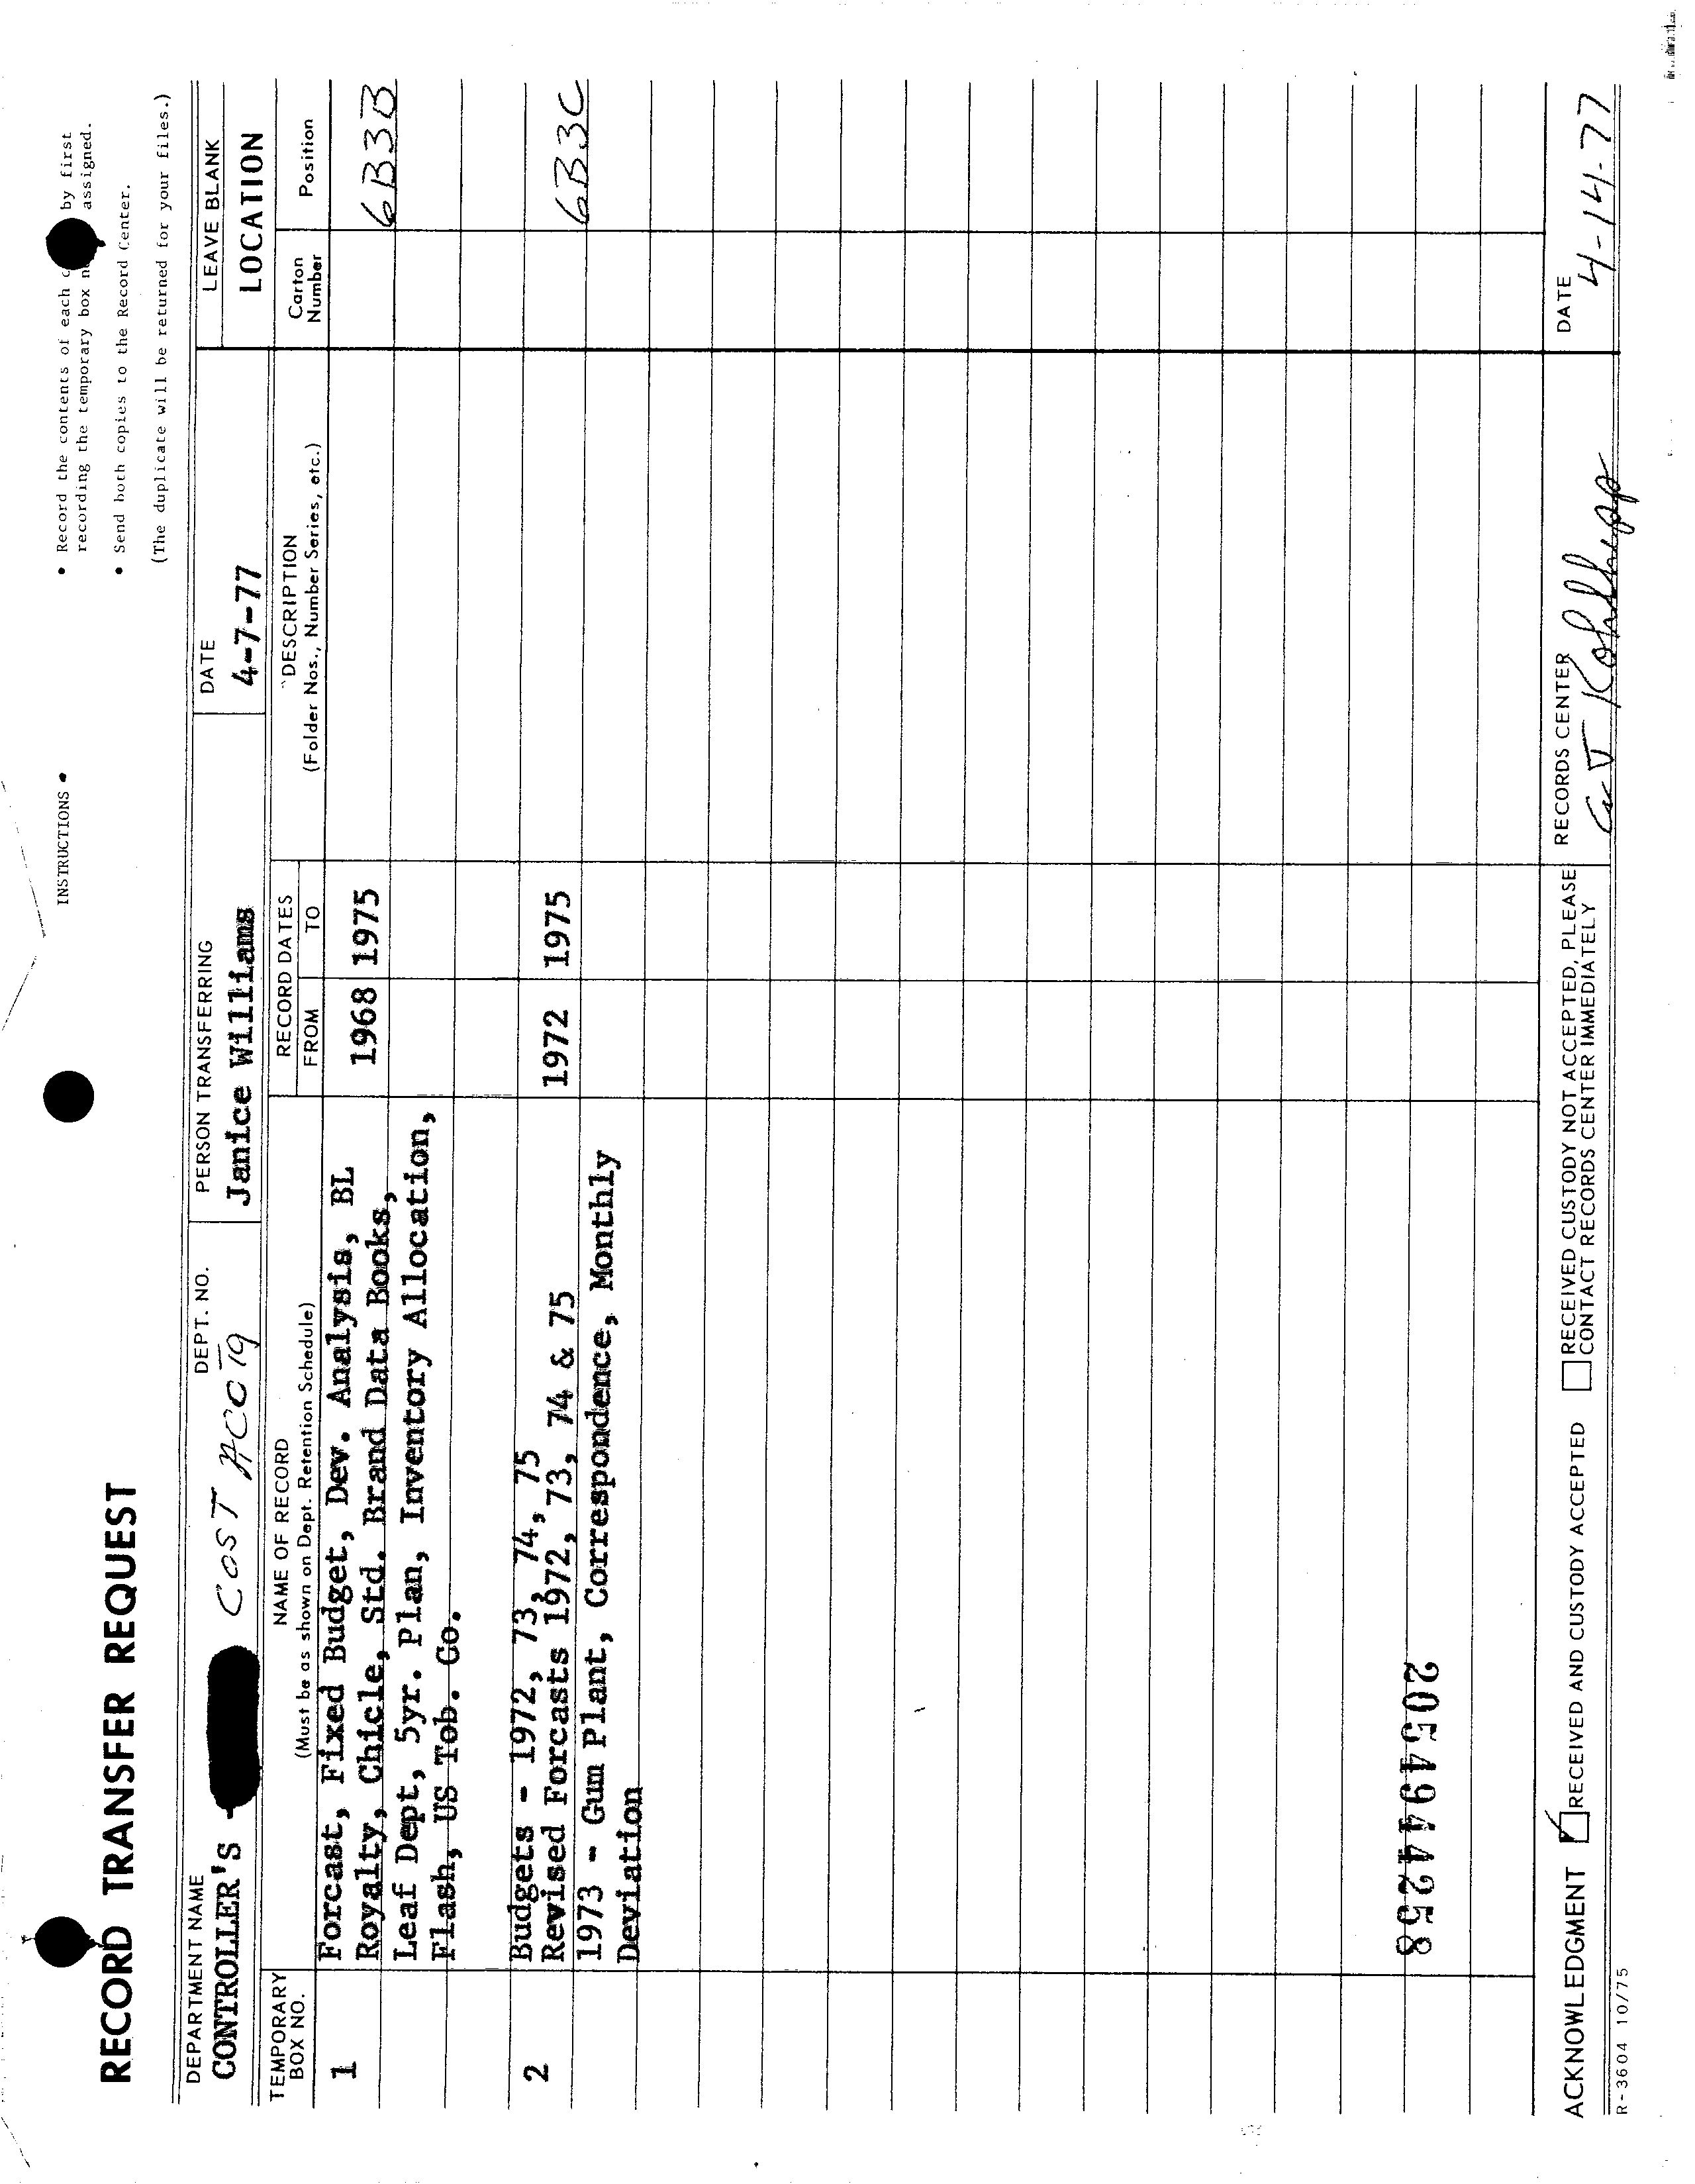 RECORD TRANSFER REQUEST
INSTRUCTIONS •
• Record the contents of each by first
recording the temporary box assigned.
• Send both copies to the Record Center.
(The duplicate will be returned for your files.)
DEPARTMENT NAME
CONTROLLER'S -
DEPT. NO.
COST ACCT'G
PERSON TRANSFERRING
Janice Williams
DATE
4-7-77
LEAVE BLANK
LOCATION
TEMPORARY
BOX NO.
NAME OF RECORD
(Must be as shown on Dept. Retention Schedule)
RECORD DATES
FROM TO
DESCRIPTION
(Folder Nos., Number Series, etc.)
Carton
Number
Position
1 Forcast, Fixed Budget, Dev. Analysis, BL 1968 1975 6B3B
Royalty, Chicle, Std. Brand Data Books,
Leaf Dept, 5yr. Plan, Inventory Allocation,
Flash, US Tob. Co.
2 Budgets - 1972, 73, 74, 75 1972 1975 6B3C
Revised Forcasts 1972, 73, 74 & 75
1973 - Gum Plant, Correspondence, Monthly
Deviation
2054944258
ACKNOWLEDGMENT
RECEIVED AND CUSTODY ACCEPTED
RECEIVED CUSTODY NOT ACCEPTED, PLEASE
CONTACT RECORDS CENTER IMMEDIATELY
RECORDS CENTER
DATE
4-14-77
R-3604 10/75